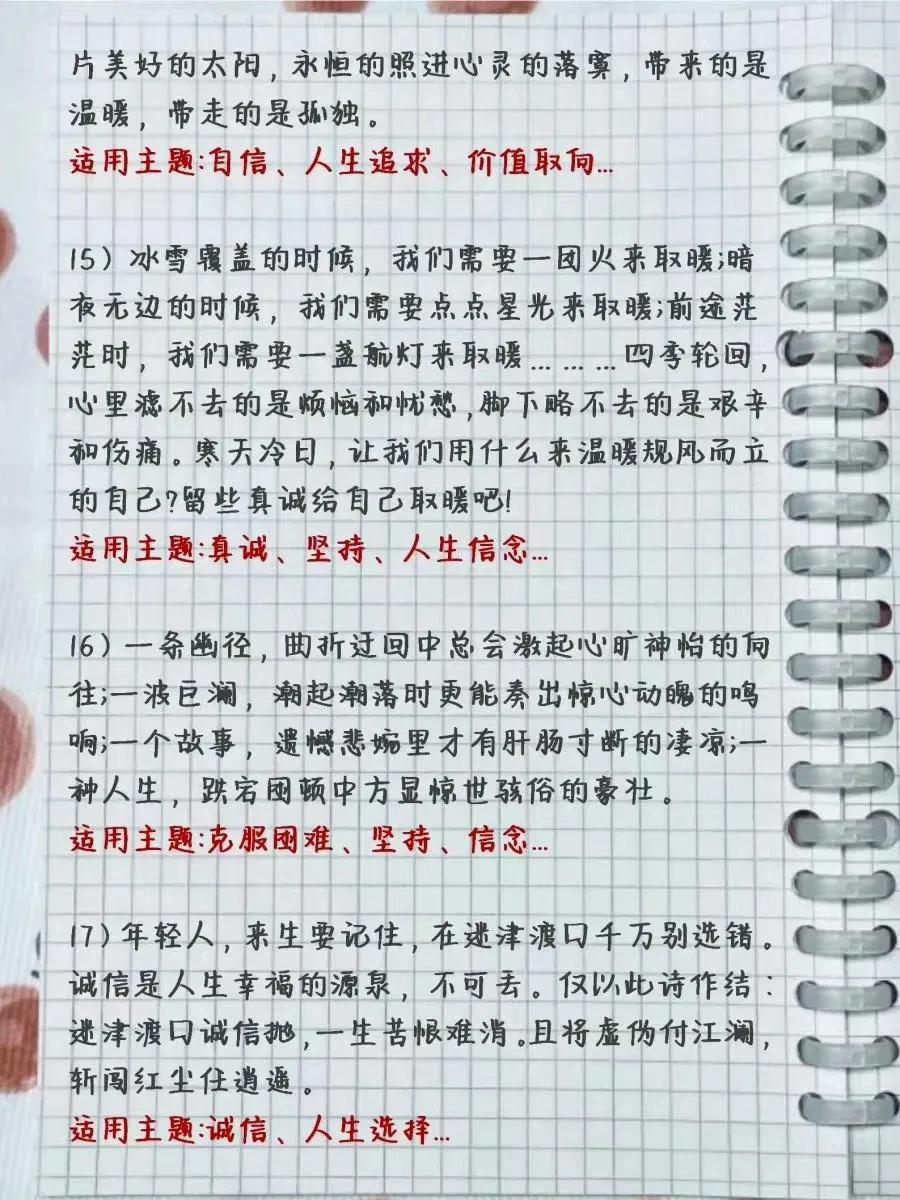 片美好的太阳，永恒的照进心灵的落寞，带来的是
温暖，带走的是孤独。
适用主题:自信、人生追求、价值取向...
15）冰雪覆盖的时候，我们需要一团火来取暖;暗
夜无边的时候，我们需要点点星光来取暖;前途茫
茫时，我们需要一盏航灯来取暖... ... ...四季轮回，
心里滤不去的是烦恼和忧愁,脚下略不去的是艰辛
和伤痛。寒天冷日，让我们用什么来温暖规风而立
的自己?留些真诚给自己取暖吧!
适用主题:真诚、坚持、人生信念...
16）一条幽径，曲折迂回中总会激起心旷神怡的向
往;一波巨澜，潮起潮落时更能奏出惊心动魄的鸣
响;一个故事，遗憾悲婉里才有肝肠寸断的凄凉;一
种人生，跌宕困顿中方显惊世骇俗的豪壮。
适用主题:克服困难、坚持、信念...
17）年轻人，来生要记住，在迷津渡口千万别选错。
诚信是人生幸福的源泉，不可丢。仅以此诗作结：
迷津渡口诚信抛,一生苦恨难消。且将虚伪付江澜，
斩闯红尘任逍遥。
适用主题:诚信、人生选择...